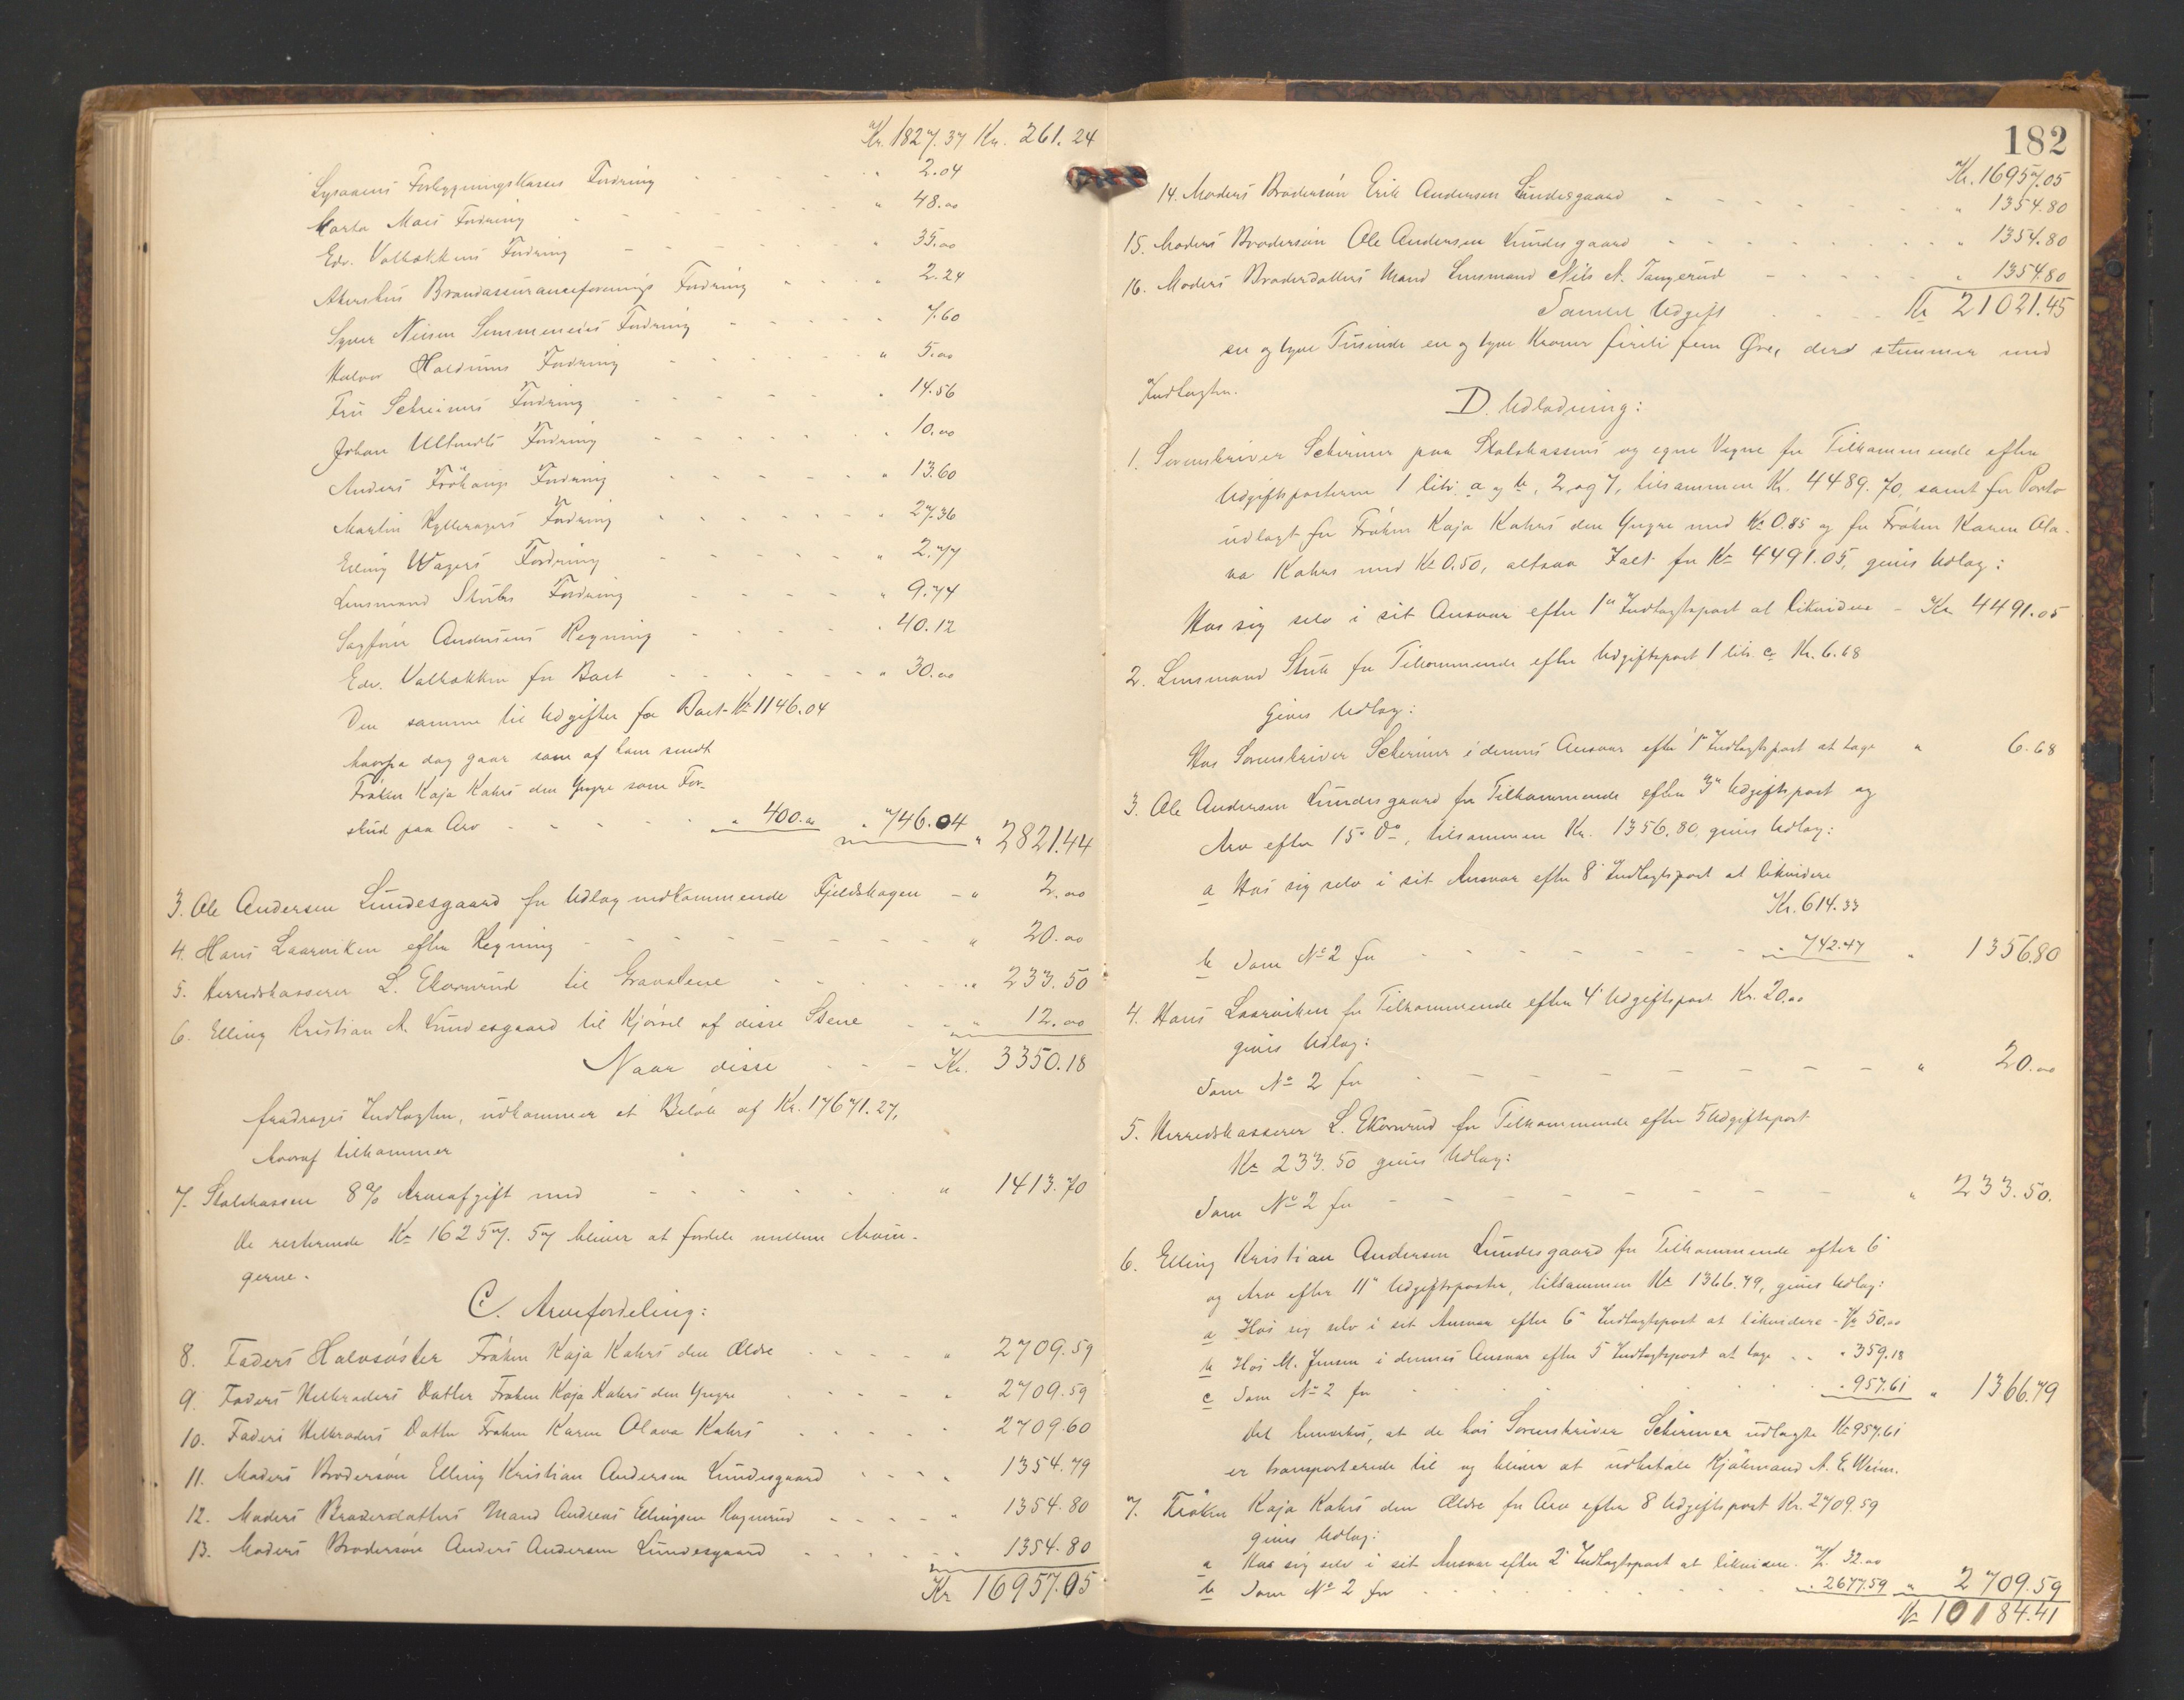 Kr. 1827.37 Kr. 261.24
Lysakens Forbygningskasses Fordring " 2.04
Marta Moes Fordring " 48.00
Edv. Volbækkens Fordring " 35.00
Akershus Brandassuranceforenings Fordring " 2.24
Syver Fordring " 7.60
Halvor Fordring " 5.00
Fru Schreiners Fordring " 14.56
Johan Fordring " 10.00
Anders Fröhaugs Fordring " 13.60
Martin Fordring " 27.36
Elling Wagers Fordring " 2.77
Lensmand Stubs Fordring " 9.74
Sagförer Andersens Regning " 40.12
Edv. Volbækken for Bact " 30.00
Den samme til Udgifter for Boet Kr 1146.04
hvorfra dog gaar som af ham sendt
Fröken Kaja Kahrs den Yngre som For-
skud paa Arv " 400.00 " 746.04 " 2821.44
3. Ole Andersen Lundesgaard for Udlæg vedkommende Fjeldskogen " 2.00
4. Hans Laarviken efter Regning " 20.00
5. Herredskasserer L. Ekornrud til Gravstene " 233.50
6. Elling Kristian A. Lundesgaard til Kjörsel af disse Stene " 12.00
Naar disse Kr. 3350.18
fradrages Indtægten, udkommer et Belöb af Kr. 17671.27,
hvoraf tilkommer
7. Statskassen 8% Arveafgift med " 1413.70
De resterende Kr 16257.57 bliver at fordele mellem Arvin-
gerne.
C. Arvefordeling:
8. Faders Halvsöster Fröken Kaja Kahrs den Ældre " 2709.59
9. Faders Helbroders Datter Fröken Kaja Kahrs den Yngre " 2709.59
10. Faders Helbroders Datter Fröken Karen Olava Kahrs " 2709.60
11. Moders Brodersön Elling Kristian Andersen Lundesgaard " 1354.79
12. Moders Broderdatters Mand Andreas Ellingsen Rognerud " 1354.80
13. Moders Brodersön Anders Andersen Lundesgaard " 1354.80
Kr 16957.05
182
Kr. 16957.05
14. Moders Brodersön Erik Andersen Lundesgaard " 1354.80
15. Moders Brodersön Ole Andersen Lundesgaard " 1354.80
16. Moders Broderdatters Mand Lensmand Nils A. Tangerud " 1354.80
Samlet Udgift Kr 21021.45
en og tyve Tusinde en og tyve Kroner firti fem Öre, der stemmer med
Indtægten.
D. Udlodning:
1. Sorenskriver Schirmer paa Statskassens og egne Vegne for Tilkommende efter
Udgiftsposterne 1 litr. a og b, 2 og 7, tilsammen Kr. 4489.70, samt for Porto
udlagt for Fröken Kaja Kahrs den Yngre med Kr 0.85 og for Fröken Karen Ola-
va Kahrs med Kr 0.50, altsaa Ialt for Kr 4491.05, gives Udlæg:
Hos sig selv i sit Ansvar efter 1" Indtægtspost at likvidere - Kr 4491.05
2. Lensmand Stub for Tilkommende efter Udgiftspost 1 litr. c Kr. 6.68
Gives Udlæg:
Hos Sorenskriver Schirmer i dennes Ansvar efter 1" Indtægtspost at tage " 6.68
3. Ole Andersen Lundesgaard for Tilkommende efter 3" Udgiftspost og
Arv efter 15" do, tilsammen Kr. 1356.80, gives Udlæg:
a Hos sig selv i sit Ansvar efter 8" Indtægtspost at likvidere
Kr. 614.33
b Som No 2 for " 742.47 " 1356.80
4. Hans Laarviken for Tilkommende efter 4" Udgiftspost Kr. 20.00
gives Udlæg:
Som No 2 for " 20.00
5. Herredskasserer L. Ekornrud for Tilkommende efter 5 Udgiftspost
Kr 233.50 gives Udlæg:
Som No 2 for " 233.50.
6. Elling Kristian Andersen Lundesgaard for Tilkommende efter 6"
og Arv efter 11" Udgiftsposter, tilsammen Kr 1366.79, gives Udlæg:
a Hos sig selv i sit Ansvar efter 6" Indtægtspost at likvidere - Kr 50.00
b Hos M. Jensen i dennes Ansvar efter 5" Indtægtspost at tage " 359.18
c Som No 2 for " 957.61 " 1366.79
Det bemærkes, at de hos Sorenskriver Schirmer udlagte Kr 957.61
er transporterede til og bliver at udbetale Kjöbmand A. E.
7. Fröken Kaja Kahrs den Ældre for Arv efter 8 Udgiftspost Kr. 2709.59
gives Udlæg:
a Hos sig selv i sit Ansvar efter 2" Indtægtspost at likvidere. Kr. 32.00
b Som No 2 for " 2677.59 " 2709.59
Kr 10184.41